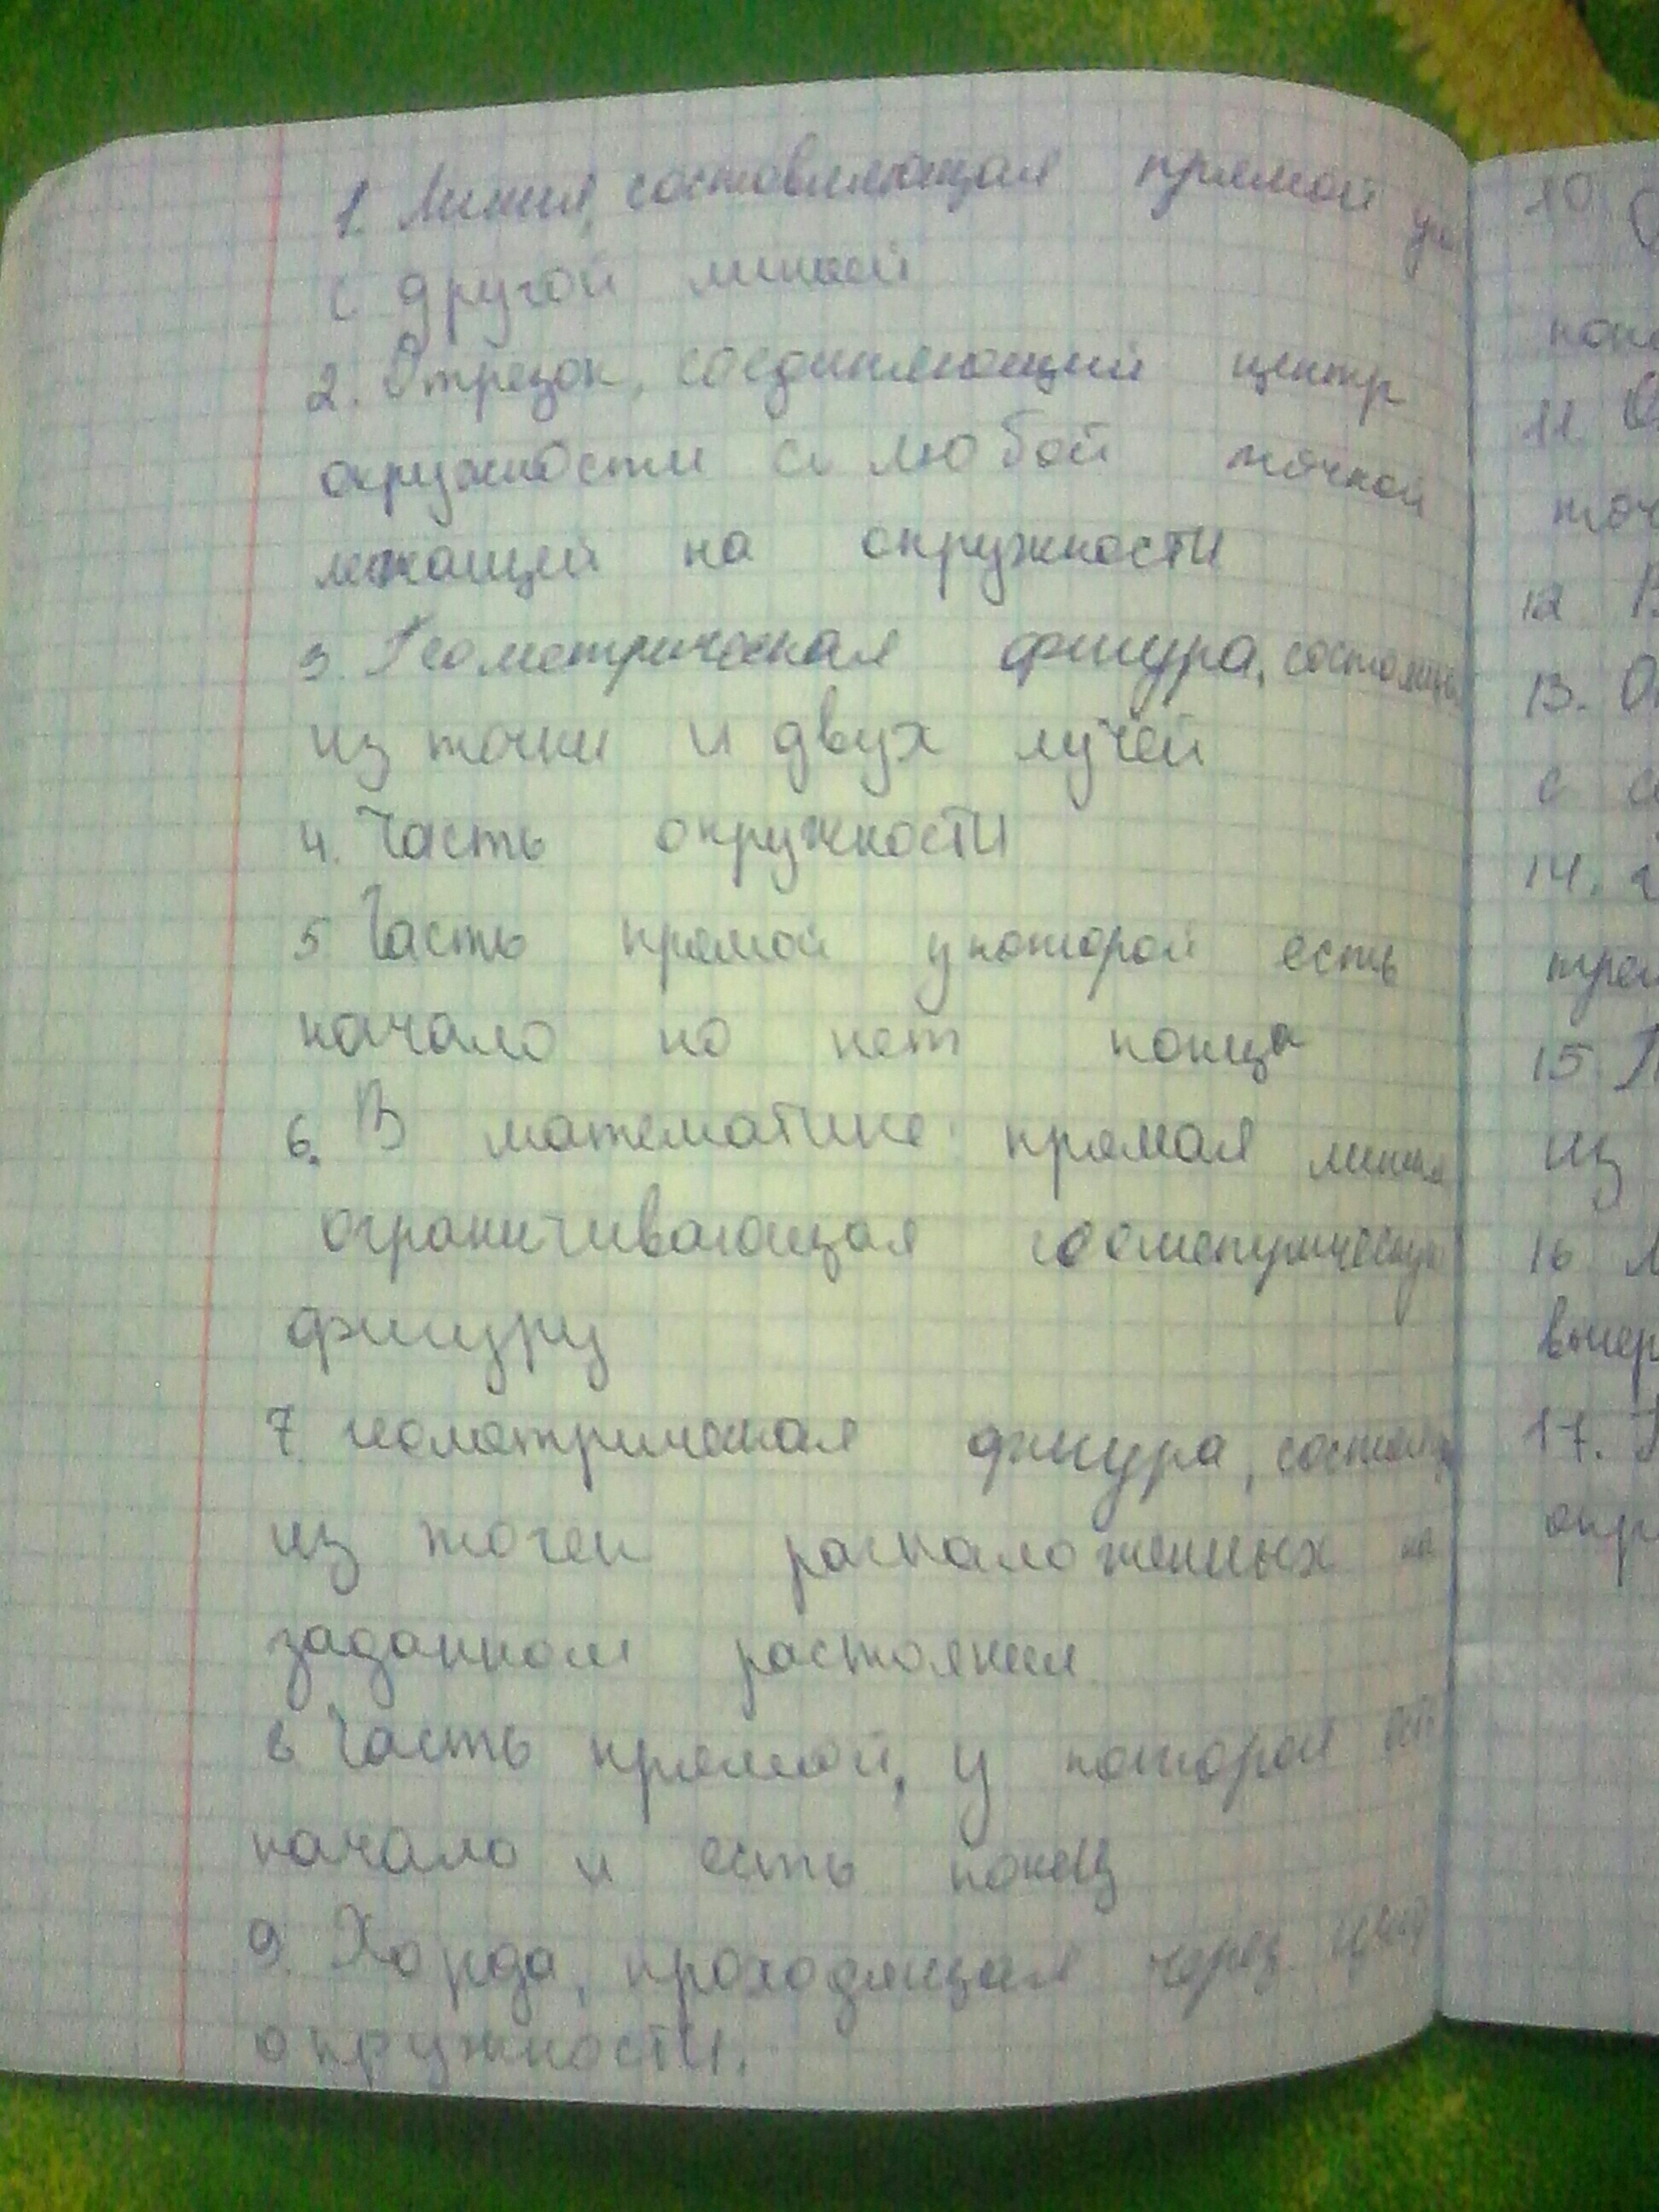 1. Линия, составляющая прямой
с другой линией
2. Отрезок, соединяющий центр
окружности с любой точкой
лежащей на окружности
3. Геометрическая фигура, состоящ
из точки и двух лучей
4. Часть окружности
5 Часть прямой у которой есть
начало но нет конца
6. В математике прямая линия
ограничивающая геометрическую
фигуру
7. геометрическая фигура,
из точек расположенных на
заданном растоянии
8 Часть прямой, у которой есть
начало и есть конец
9. Хорда, проходящая через
окружности.
10
11
точ
12 В
13. От
с
14.
15.
из
16
17.